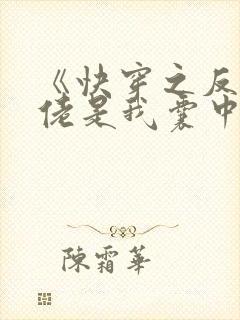 《快穿之反
佬是我囊中
陈霜华